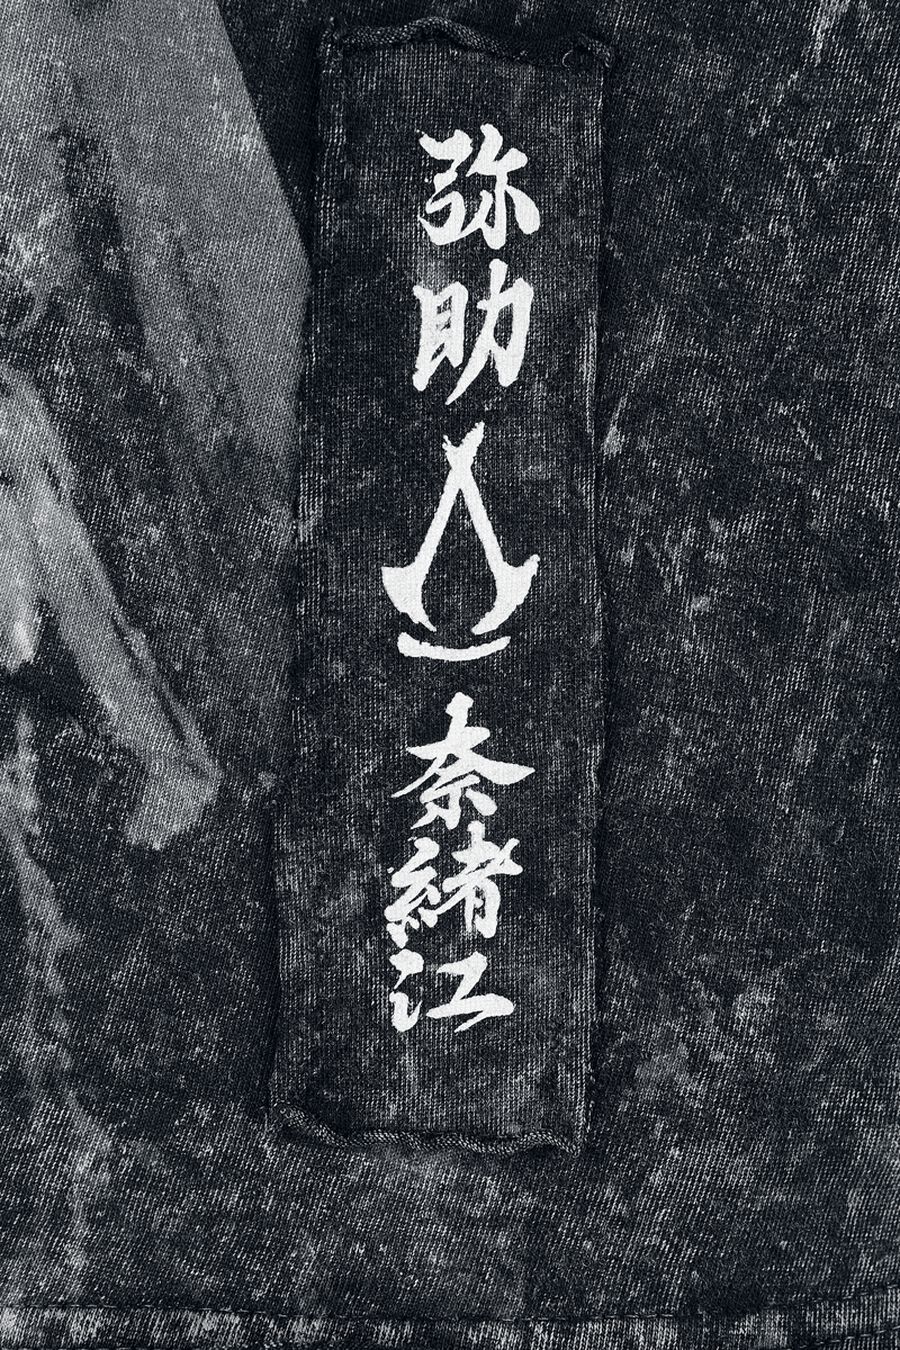 弥助
奈緒江